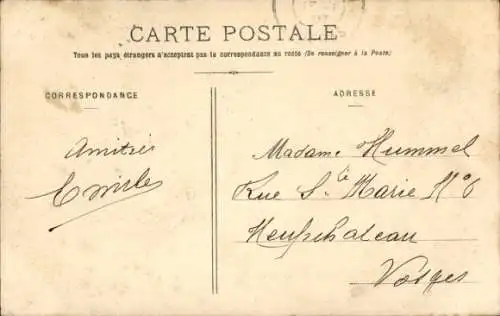 CARTE POSTALE
Tous les pays étrangers n'acceptent pas la correspondance au recto (Se renseigner à la Poste)
CORRESPONDANCE
ADRESSE
Amitiés
Emile
Madame Hummel
Rue Ste Marie No 6
Neufchateau
Vosges